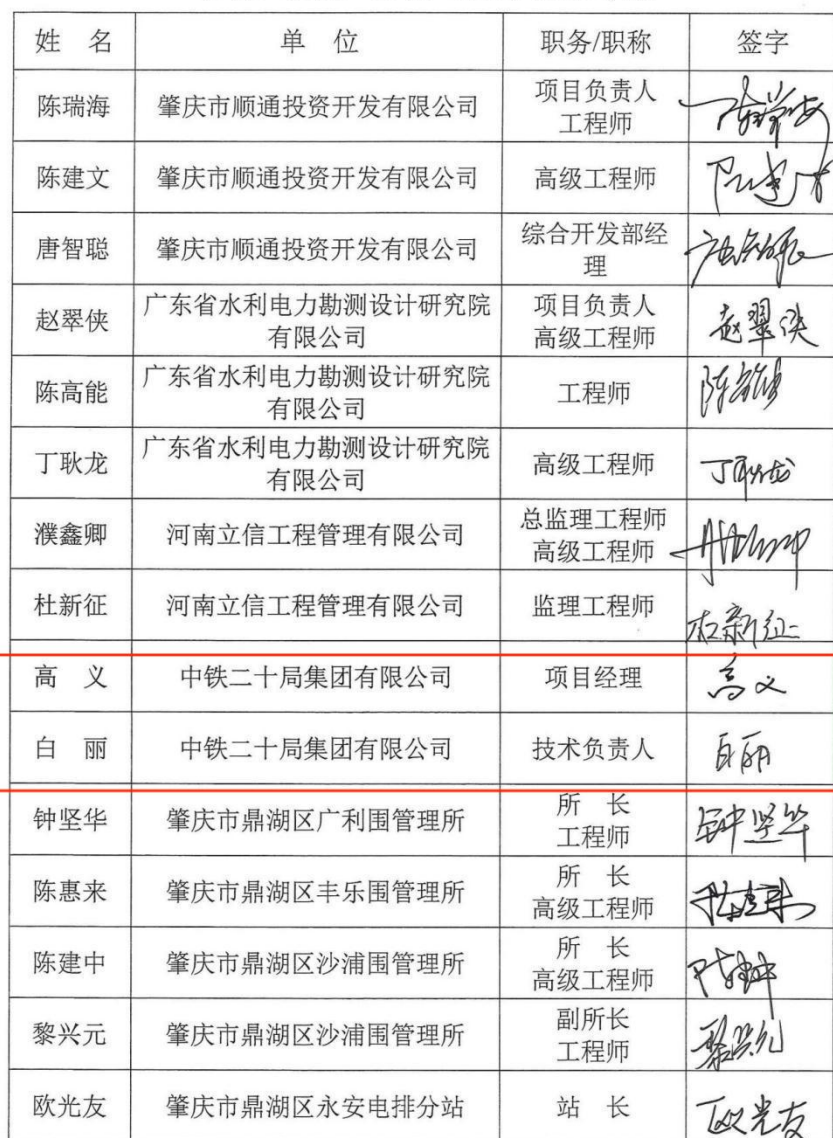 姓 名 单 位 职务/职称 签字
陈瑞海 肇庆市顺通投资开发有限公司 项目负责人 陈瑞海
工程师
陈建文 肇庆市顺通投资开发有限公司 高级工程师 陈建文
唐智聪 肇庆市顺通投资开发有限公司 综合开发部经 唐智聪
理
赵翠侠 广东省水利电力勘测设计研究院 项目负责人 赵翠侠
有限公司 高级工程师
陈高能 广东省水利电力勘测设计研究院 工程师 陈高能
有限公司
丁耿龙 广东省水利电力勘测设计研究院 高级工程师 丁耿龙
有限公司
濮鑫卿 河南立信工程管理有限公司 总监理工程师
高级工程师
杜新征 河南立信工程管理有限公司 监理工程师 杜新征
高 义 中铁二十局集团有限公司 项目经理 高义
白 丽 中铁二十局集团有限公司 技术负责人 白丽
钟坚华 肇庆市鼎湖区广利围管理所 所 长 钟坚华
工程师
陈惠来 肇庆市鼎湖区丰乐围管理所 所 长 陈惠来
高级工程师
陈建中 肇庆市鼎湖区沙浦围管理所 所 长 陈建中
高级工程师
黎兴元 肇庆市鼎湖区沙浦围管理所 副所长 黎兴元
工程师
欧光友 肇庆市鼎湖区永安电排分站 站 长 欧光友